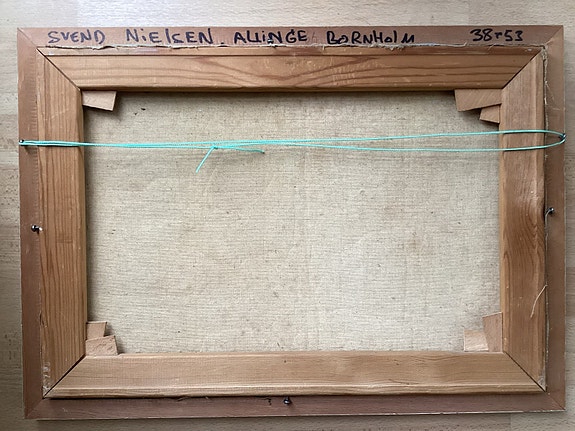 SVEND NIELSEN. ALLINGE BORNHOLM 38-53